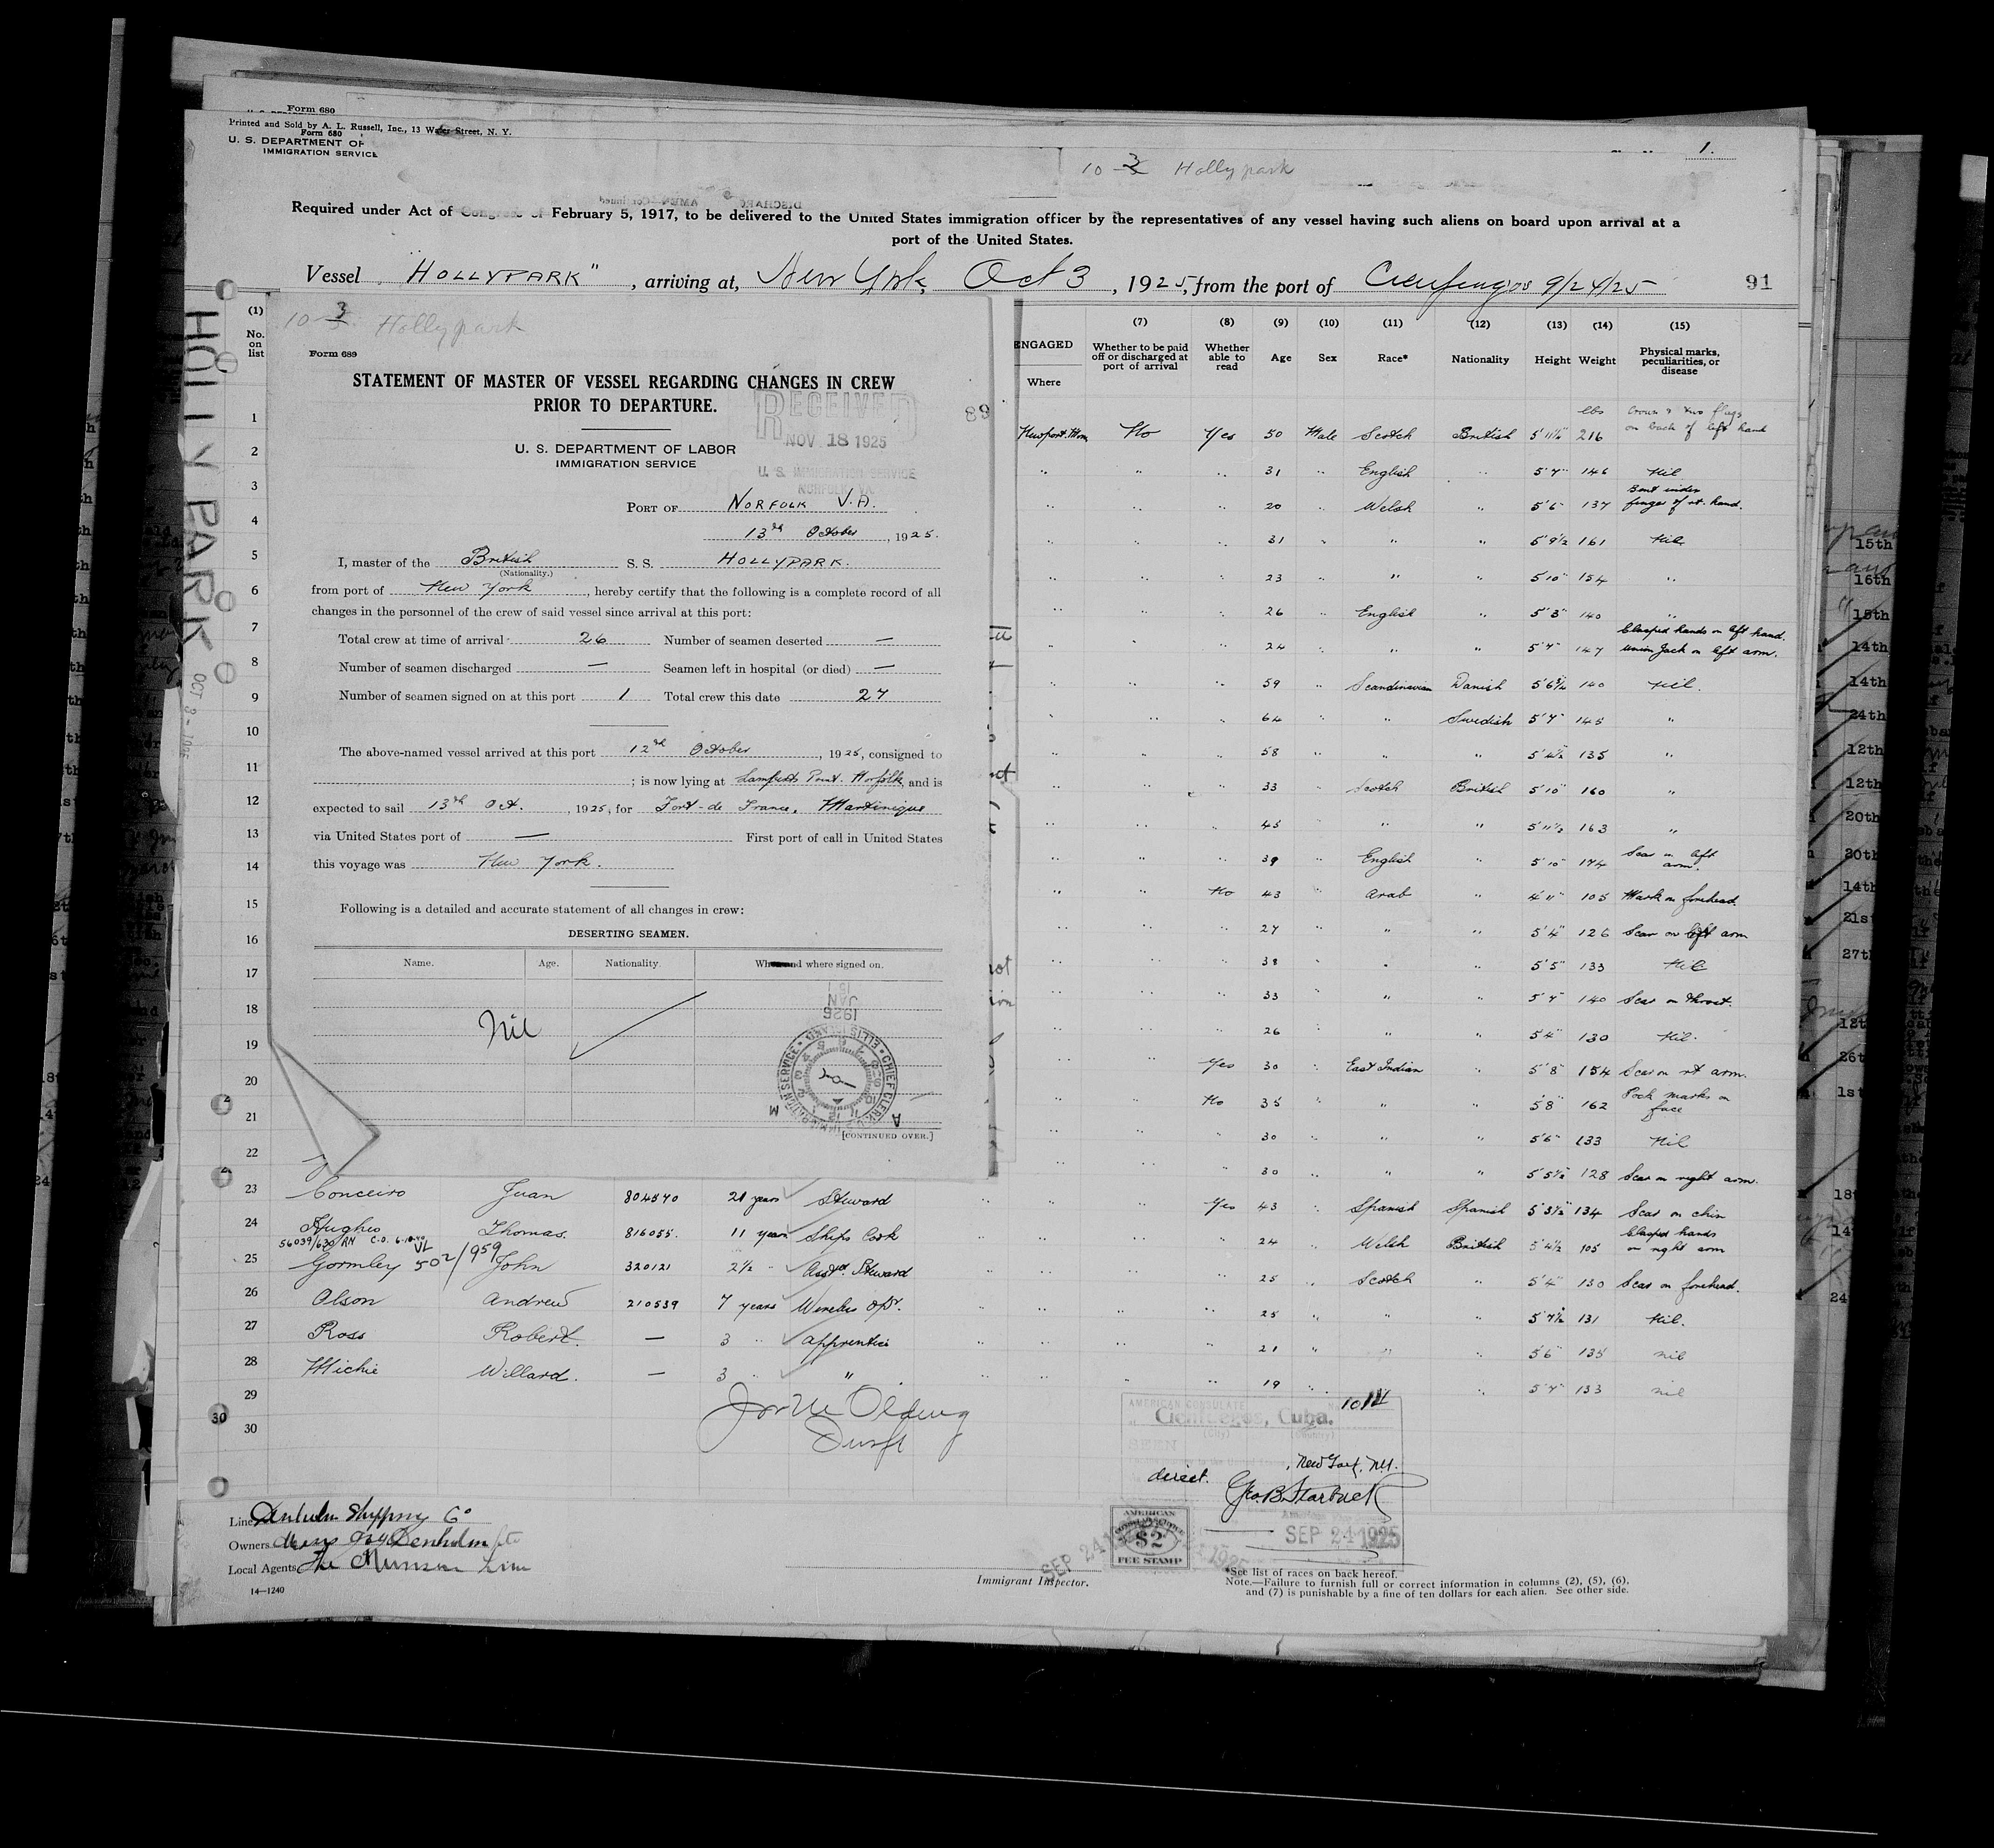 Form 680
Printed and Sold by A. L. Russell, Inc., 13 Water Street, N. Y.
Form 680
U. S. DEPARTMENT OF
IMMIGRATION SERVICE
1.
10 3 Hollypark
Required under Act of Congress of February 5, 1917, to be delivered to the United States immigration officer by the representatives of any vessel having such aliens on board upon arrival at a
port of the United States.
Vessel "HOLLYPARK", arriving at, New York, Oct 3, 1925, from the port of Cienfuegos 9/24/25
91
HOLLYPARK OCT 3 - 1925
10-3. Hollypark
Form 689
STATEMENT OF MASTER OF VESSEL REGARDING CHANGES IN CREW
PRIOR TO DEPARTURE.
RECEIVED
NOV 18 1925
U. S. IMMIGRATION SERVICE
NORFOLK, VA.
89
U. S. DEPARTMENT OF LABOR
IMMIGRATION SERVICE
PORT OF NORFOLK V.A.
13th October, 1925.
I, master of the British S. S. HOLLYPARK.
(Nationality.)
from port of New York, hereby certify that the following is a complete record of all
changes in the personnel of the crew of said vessel since arrival at this port:
Total crew at time of arrival 26 Number of seamen deserted —
Number of seamen discharged — Seamen left in hospital (or died) —
Number of seamen signed on at this port 1 Total crew this date 27
The above-named vessel arrived at this port 12th October, 1925, consigned to
; is now lying at Lamperts Point. Norfolk, and is
expected to sail 13th Oct. 1925, for Fort-de France, Martinique
via United States port of — First port of call in United States
this voyage was New York.
Following is a detailed and accurate statement of all changes in crew:
DESERTING SEAMEN.
Name. Age. Nationality. When and where signed on.
Nil
JAN
1926
IMMIGRATION SERVICE ELLIS ISLAND CHIEF CLERK
[CONTINUED OVER.]
(1) No. on list
ENGAGED Where
(7) Whether to be paid off or discharged at port of arrival
(8) Whether able to read
(9) Age
(10) Sex
(11) Race*
(12) Nationality
(13) Height
(14) Weight
(15) Physical marks, peculiarities, or disease
1 Newport. Mon No Yes 50 Male Scotch British 5'11½" lbs 216 Crown & two flags on back of left hand
2 " " " 31 " English " 5'7" 146 Nil
3 " " " 20 " Welsh " 5'6" 137 Bent index finger of rt. hand.
4 " " " 31 " " " 5'9½ 161 Nil
5 " " " 23 " " " 5'10" 154 "
6 " " " 26 " English " 5'3" 140 "
7 " " " 24 " " " 5'7" 147 Clasped hands on left hand. Union Jack on left arm.
8 " " " 59 " Scandinavian Danish 5'6½ 140 Nil.
9 " " " 64 " " Swedish 5'7" 145 "
10 " " " 58 " " " 5'4½ 135 "
11 " " " 33 " Scotch British 5'10" 160 "
12 " " " 45 " " " 5'11½ 163 "
13 " " " 39 " English " 5'10" 174 Scar on left arm.
14 " " No 43 " Arab " 4'11" 105 Mark on forehead.
15 " " " 27 " " " 5'4" 126 Scar on left arm
16 " " " 38 " " " 5'5" 133 Nil
17 " " " 33 " " " 5'7" 140 Scar on throat.
18 " " " 26 " " " 5'4" 130 Nil.
19 " " Yes 30 " East Indian " 5'8" 154 Scar on rt arm.
20 " " No 35 " " " 5'8" 162 Pock marks on face
21 " " " 30 " " " 5'6" 133 Nil
22 " " " 30 " " " 5'5½" 128 Scar on right arm.
23 Conceiro Juan 804570 21 years Steward " " " Yes 43 " Spanish Spanish 5'3½" 134 Scar on chin
24 Hughes Thomas. 816055. 11 years Ships Cook " " " " 24 " Welsh British 5'4½ 105 Clasped hands on right arm
56039/630 RN C.O. 6-10-40
VL 502/959
25 Gormley John 320121 2½ " Asst. Steward " " " " 25 " Scotch " 5'4" 130 Scar on forehead.
26 Olson Andrew 210539 7 years Wireless Opr. " " " " 25 " " " 5'7½ 131 Nil.
27 Ross Robert. — 3 " Apprentice " " " " 21 " " " 5'6" 135 nil
28 Michie Willard. — 3 " " " " " " 19 " " 5'7" 133 nil
29
30
30
AMERICAN CONSULATE
Cienfuegos, Cuba.
(City) (Country)
SEEN
direct. New York, N.Y.
Geo. B. Starbuck
SEP 24 1925
AMERICAN
$2
FEE STAMP
SEP 24 1925
Line
Owners
Local Agents The Munson Line
14—1240
Immigrant Inspector.
*See list of races on back hereof.
Note.—Failure to furnish full or correct information in columns (2), (5), (6),
and (7) is punishable by a fine of ten dollars for each alien. See other side.
15th
16th
15th
14th
14th
24th
12th
12th
20th
20th
14th
21st
27th
12th
26th
1st
18th
14th
24